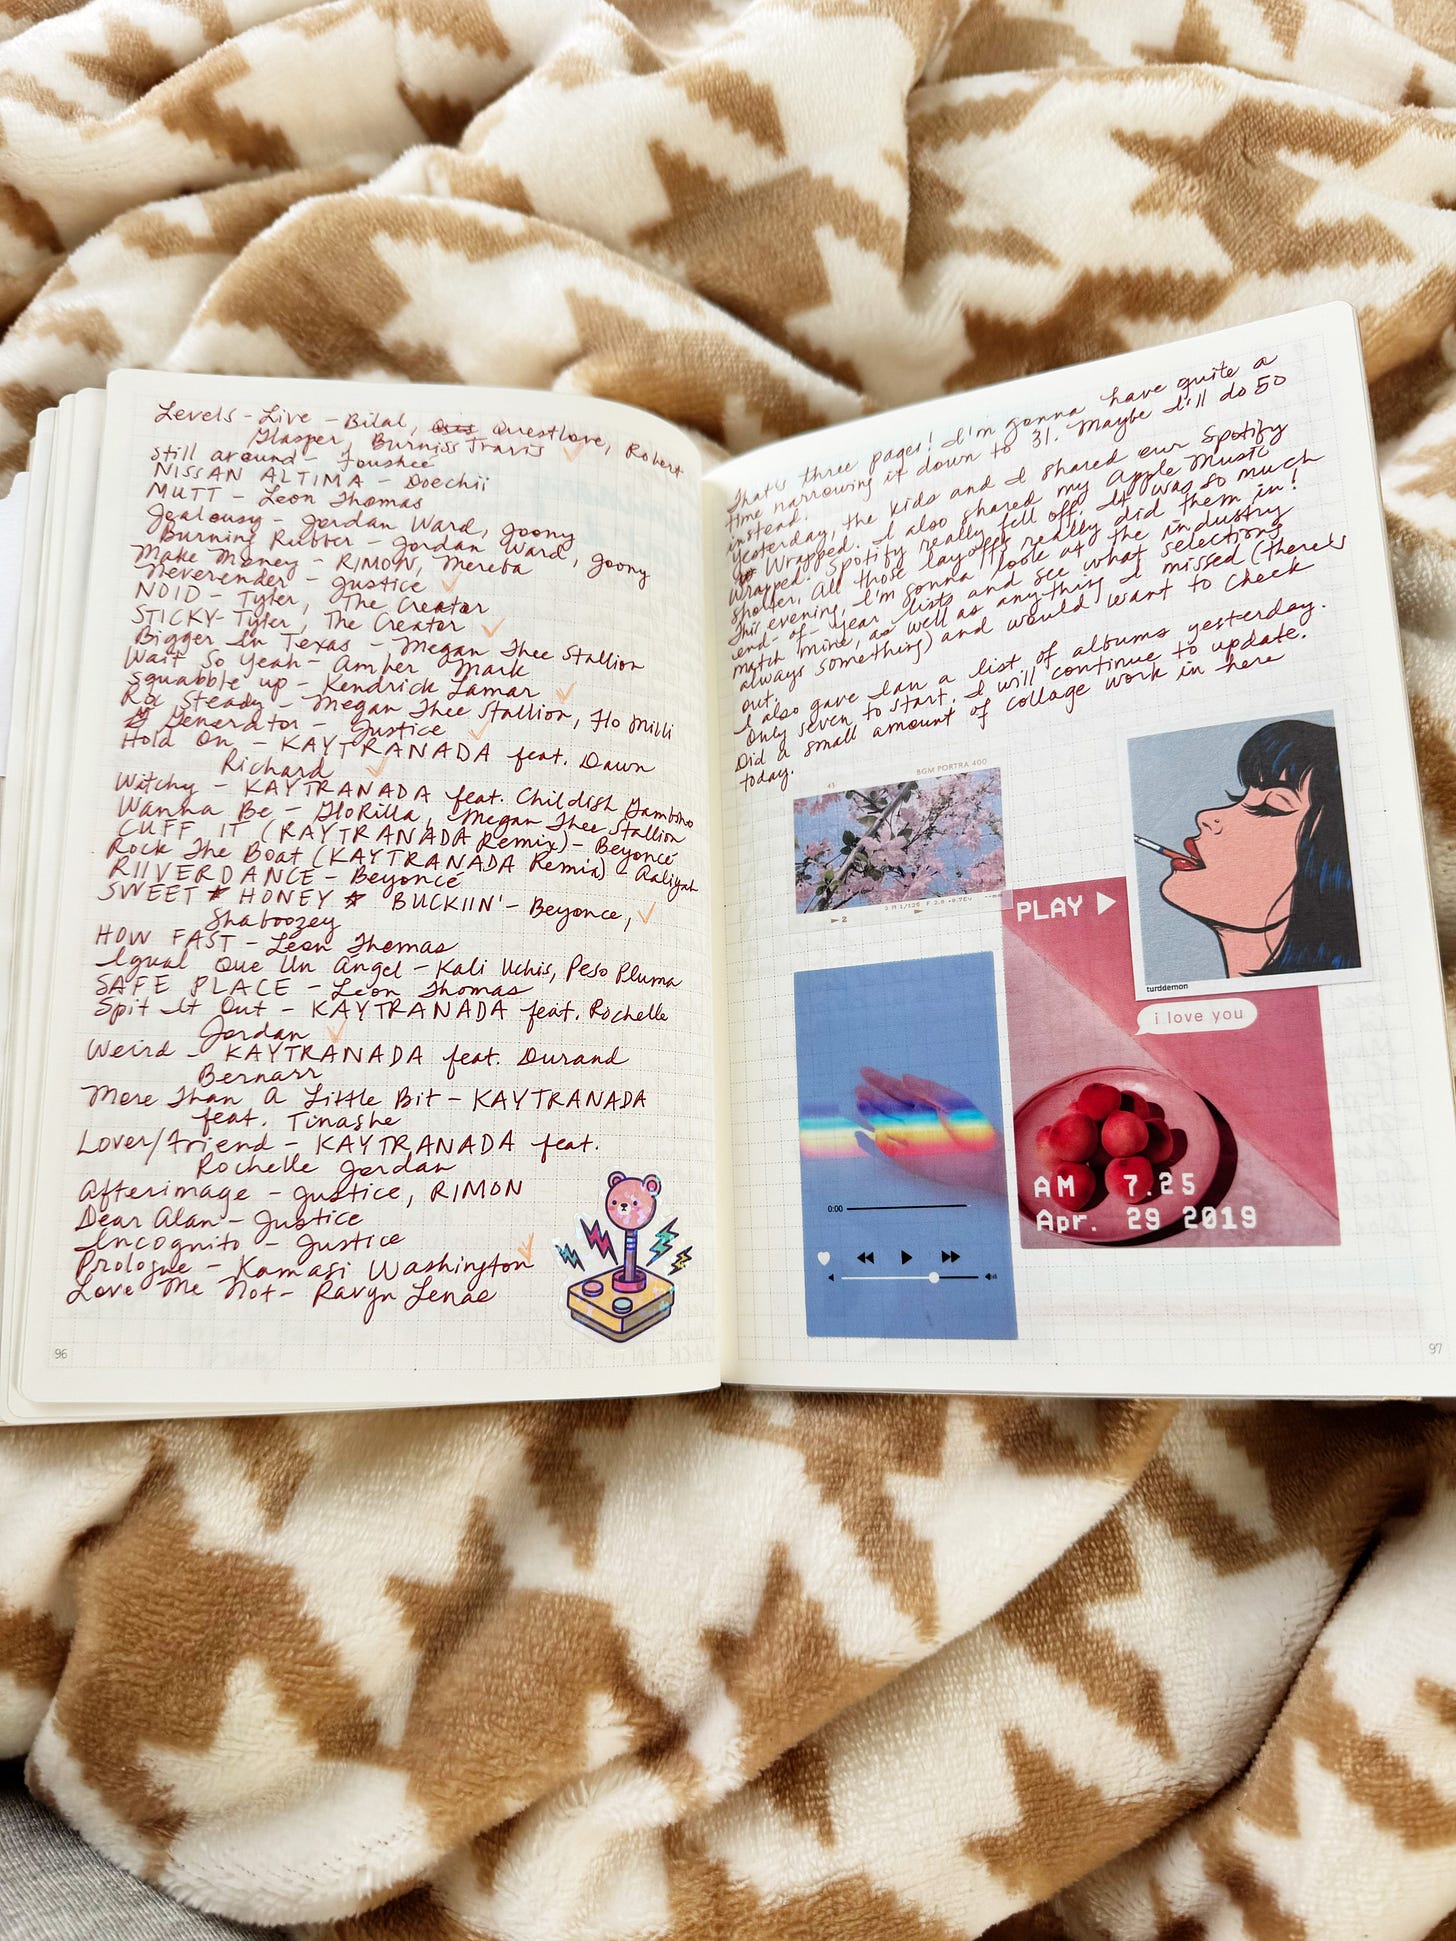 Levels - Live - Bilal, Questlove, Robert
Glasper, Burniss Travis ✓
still around - Fousheé
NISSAN ALTIMA - Doechii
MUTT - Leon Thomas
Jealousy - Jordan Ward, Joony
Burning Rubber - Jordan Ward, Joony
Make Money - RIMON, Mereba
Neverender - Justice ✓
NOID - Tyler, The Creator
STICKY - Tyler, The Creator ✓
Bigger In Texas - Megan Thee Stallion
Wait So Yeah - Amber Mark
squabble up - Kendrick Lamar ✓
Roc Steady - Megan Thee Stallion, Flo Milli
Generator - Justice ✓
Hold On - KAYTRANADA feat. Dawn
Richard ✓
Witchy - KAYTRANADA feat. Childish Gambino
Wanna Be - GloRilla, Megan Thee Stallion
CUFF IT (KAYTRANADA Remix) - Beyoncé
Rock The Boat (KAYTRANADA Remix) - Aaliyah
RIIVERDANCE - Beyoncé
SWEET ★ HONEY ★ BUCKIIN' - Beyonce, ✓
Shaboozey
HOW FAST - Leon Thomas
Igual Que Un Ángel - Kali Uchis, Peso Pluma
SAFE PLACE - Leon Thomas
Spit It Out - KAYTRANADA feat. Rochelle
Jordan ✓
Weird - KAYTRANADA feat. Durand
Bernarr
More Than A Little Bit - KAYTRANADA
feat. Tinashe
Lover/Friend - KAYTRANADA feat.
Rochelle Jordan
Afterimage - Justice, RIMON
Dear Alan - Justice
Incognito - Justice
Prologue - Kamasi Washington ✓
Love Me Not - Ravyn Lenae
96
That's three pages! I'm gonna have quite a
time narrowing it down to 31. Maybe I'll do 50
instead.
Yesterday, the kids and I shared our Spotify
Wrapped. I also shared my Apple Music
Wrapped. Spotify really fell off. It was so much
shorter, All those layoffs really did them in!
This evening, I'm gonna look at the industry
end-of-year lists and see what selections
match mine, as well as anything I missed (there's
always something) and would want to check
out.
I also gave Ian a list of albums yesterday.
Only seven to start. I will continue to update.
Did a small amount of collage work in here
today.
BGM PORTRA 400
45
2
PLAY
turddemon
i love you
0:00
AM 7.25
Apr. 29 2019
97